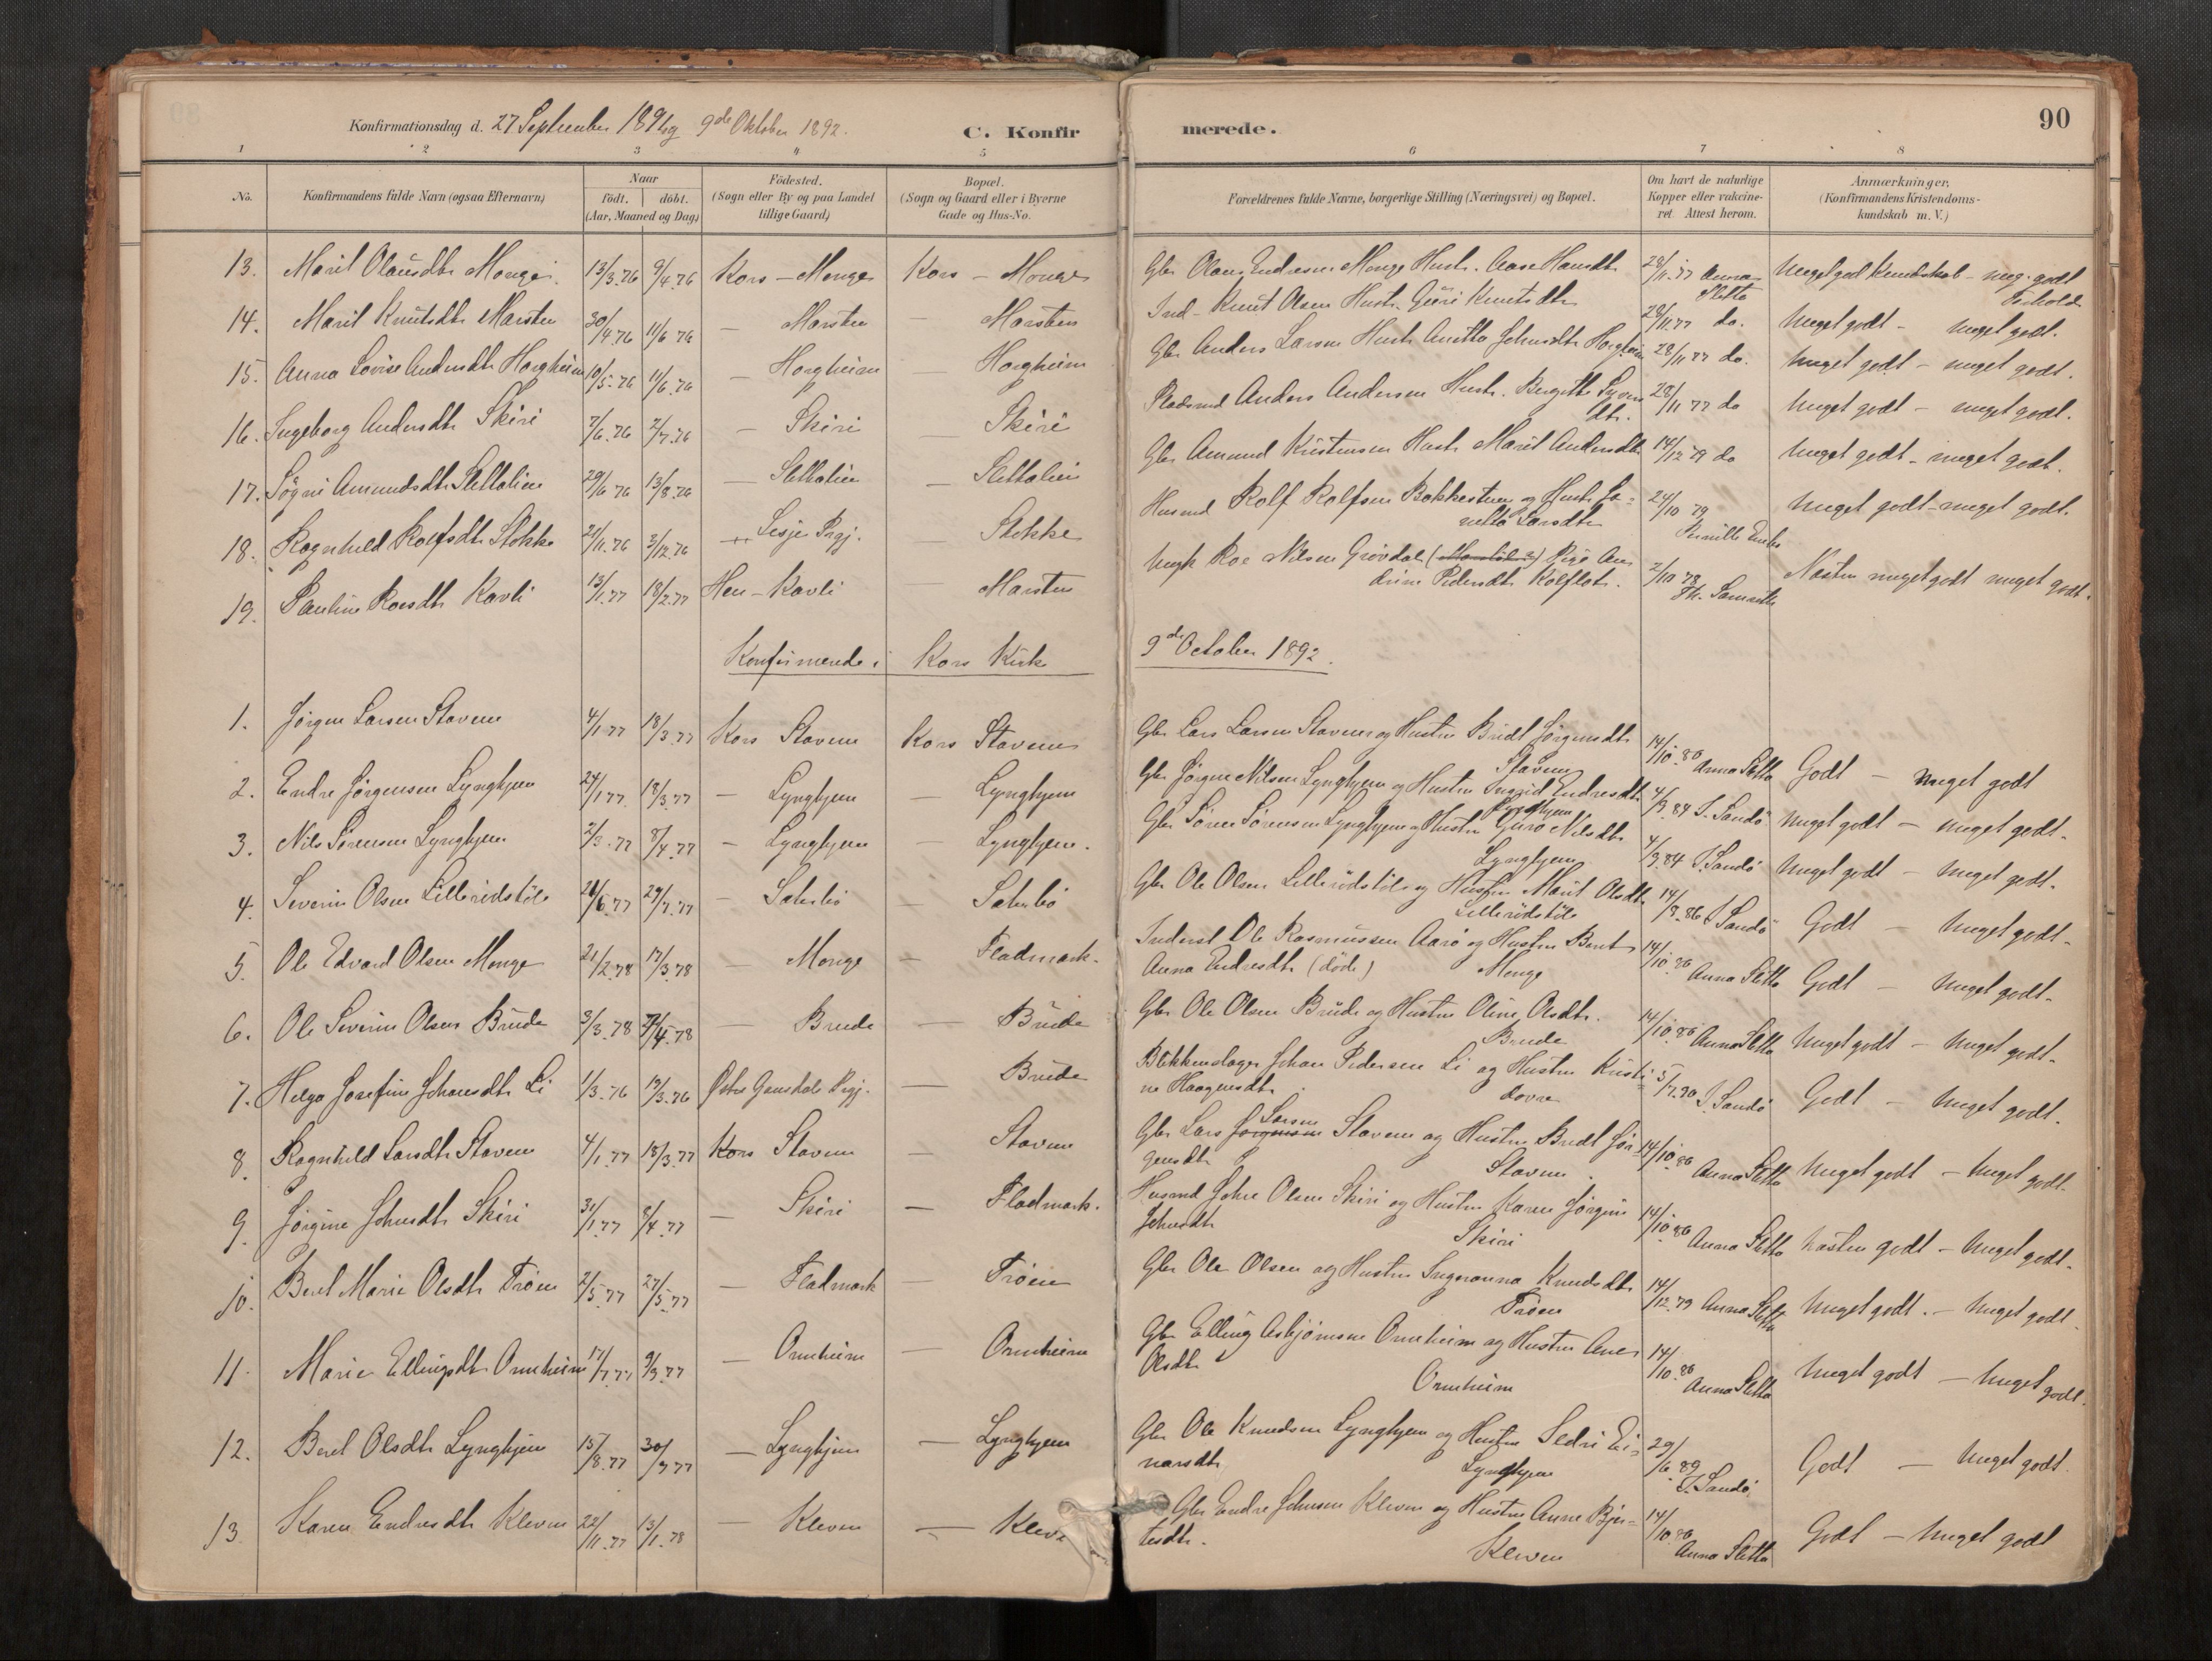 Konfirmationsdag d. 27 September 1891 og 9de Oktober 1892. C. Konfirmerede. 90
1 2 3 4 5 6 7 8
No. Konfirmandens fulde Navn (ogsaa Efternavn) Naar født. døbt. (Aar, Maaned og Dag) Födested. (Sogn eller By og paa Landet tillige Gaard) Bopæl. (Sogn og Gaard eller i Byerne Gade og Hus-No. Forældrenes fulde Navne, borgerlige Stilling (Næringsvei) og Bopæl. Om havt de naturlige Kopper eller vakcineret. Attest herom. Anmærkninger. (Konfirmandens Kristendomskundskab m. V.)
13. Marit Olausdtr Monge. 13/3.76 9/4.76 Kors – Monge Kors – Monge Gbr Olaus Endresen Monge Hustr. Aase Hansdtr 28/11.77 Anna Sletta Meget god Kundskab – meg. godt Forhold
14. Marit Knutsdtr Marsten 30/4.76 11/6 76 – Marsten – Marsten Ind- Knut Olsen Hustr Guri Knutsdtr 28/11.77 do. Meget godt – meget godt.
15. Anna Lovise Andersdtr Horgheim 10/5.76 11/6.76 – Horgheim – Horgheim Gbr Anders Larsen Hustr Anitta Johnsdtr Horgheim 28/11 77 do. Meget godt – meget godt.
16. Ingeborg Andersdtr Skiri 7/6.76 2/7.76 – Skiri – Skiri Pladsmd Anders Andersen Hustr. Bergitte Syversdtr. 28/11 77 do Meget godt – meget godt.
17. Søgni Amundsdtr Slettalien 29/6 76 13/8.76 – Slettalien – Slettalien Gbr Amund Kristensen Hustr Marit Andersdtr 14/12 79 do Meget godt – meget godt.
18. Ragnhild Rolfsdtr Stokke 21/11.76 3/12.76 – Lesje Prgj. – Stokke Husmd Rolf Rolfsen Bakkestuen og Hustr Janetta Larsdtr 24/10 79 Pernille Meget godt – meget godt.
19. Pauline Roesdtr Kavli 13/1.77 18/2.77 Hen – Kavli Marsten Ungk Roe Nilsen Grøvdal Pige Andrine Pedersdtr Kolflot. 2/10 78 Næsten meget godt meget godt.
Konfirmerede i Kors Kirke 9de October 1892.
1. Jørgen Larsen Staven 4/1 77 18/3.77 Kors Staven Kors Staven Gbr Lars Larsen Staven og Hustru Bridt Jørgensdtr Staven 14/10.86 Anna Sletta Godt – meget godt
2. Endre Jørgensen Lynghjem 24/1 77. 18/3.77 – Lynghjem – Lynghjem Gbr Jørgen Nilsen Lynghjem og Hustru Ingrid Endresdtr Lynghjem 4/9.84 S. Sandø meget godt – meget godt.
3. Nils Sørensen Lynghjem 2/3.77 8/4.77 – Lynghjem – Lynghjem. Gbr Søren Sørensen Lynghjem og Hustru Guro Nilsdtr Lynghjem 4/9.84 S. Sandø Meget godt – meget godt.
4. Severin Olsen Lillerødstöl 26/6.77 29/7.77 – Sæterbø – Sæterbø Gbr Ole Olsen Lillerødstöle og Hustru Marit Olsdtr Lillerødstöle 14/9.86 S Sandø Godt – meget godt.
5. Ole Edvard Olsen Monge 21/2.78 17/3.78 – Monge – Fladmark. Inderst Ole Rasmussen Aarø og Hustru Berit Anna Endresdtr (død) Monge 14/10.86 Anna Sletta Godt – meget godt.
6. Ole Severin Olsen Brude 3/3.78 7/4.78 – Brude – Brude Gbr Ole Olsen Brude og Hustru Oline Olsdtr. Brude 14/10.86 Anna Sletta Meget godt – meget godt.
7. Helga Josefine Johansdtr Li 1/3.76 19/3.76 Østre Gausdals Prgj. – Brude Blikkenslager Johan Pedersen Li og Hustru Kristine Haagensdtr. Dovre 5/7.90 S. Sandø Godt – meget godt.
8. Ragnhild Larsdtr Staven 4/1.77 18/3.77 Kors Staven – Staven Gbr Lars Jørgensen Larsen Staven og Hustru Bridt Jørgensdtr Staven. 14/10.86 Anna Sletta Meget godt – meget godt.
9. Jørgine Johnsdtr Skiri 31/1.77 8/4.77 – Skiri – Fladmark. Husmd John Olsen Skiri og Hustru Karen Jørgine Johnsdtr Skiri 14/10.86 Anna Sletta næsten godt – meget godt.
10. Berit Marie Olsdtr Trøen 2/5.77 27/5.77 – Fladmark – Trøen Gbr Ole Olsen og Hustru Ingeranna Knudsdtr Trøen 14/12.79 Anna Sletta Meget godt. – meget godt.
11. Marie Ellingsdtr Ormheim 17/7.77 9/9.77 – Ormheim – Ormheim Gbr Elling Asbjørnsen Ormheim og Hustru Ane Olsdtr Ormheim 14/10.86 Anna Sletta Meget godt – meget godt.
12. Berit Olsdtr Lynghjem 15/8.77 30/9 77 – Lynghjem – Lynghjem Gbr Ole Knudsen Lynghjem og Hustru Sedri Einarsdtr Lynghjem 29/6.89 S. Sandø Godt – meget godt.
13. Karen Endresdtr Kleven 22/11.77 13/1.78 – Kleven – Kleve Gbr Endre Johnsen Kleven og Hustru Anne Bjertesdtr. Kleven 14/10.86 Anna Sletta Godt – meget godt